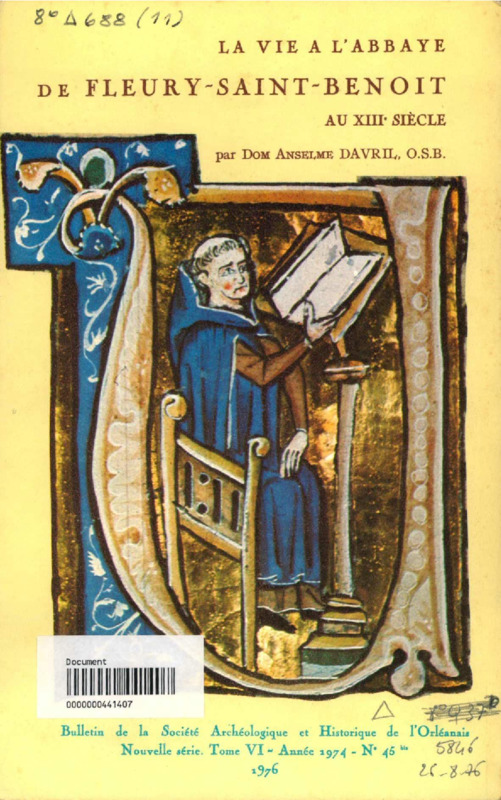 8° Δ 688 (11)
LA VIE A L'ABBAYE
DE FLEURY-SAINT-BENOIT
AU XIIIᵉ SIÈCLE
par DOM ANSELME DAVRIL, O.S.B.
Document
0000000441407
Bulletin de la Société Archéologique et Historique de l'Orléanais
Nouvelle série. Tome VI - Année 1974 - N° 45 bis
1976
5846
25-8-76